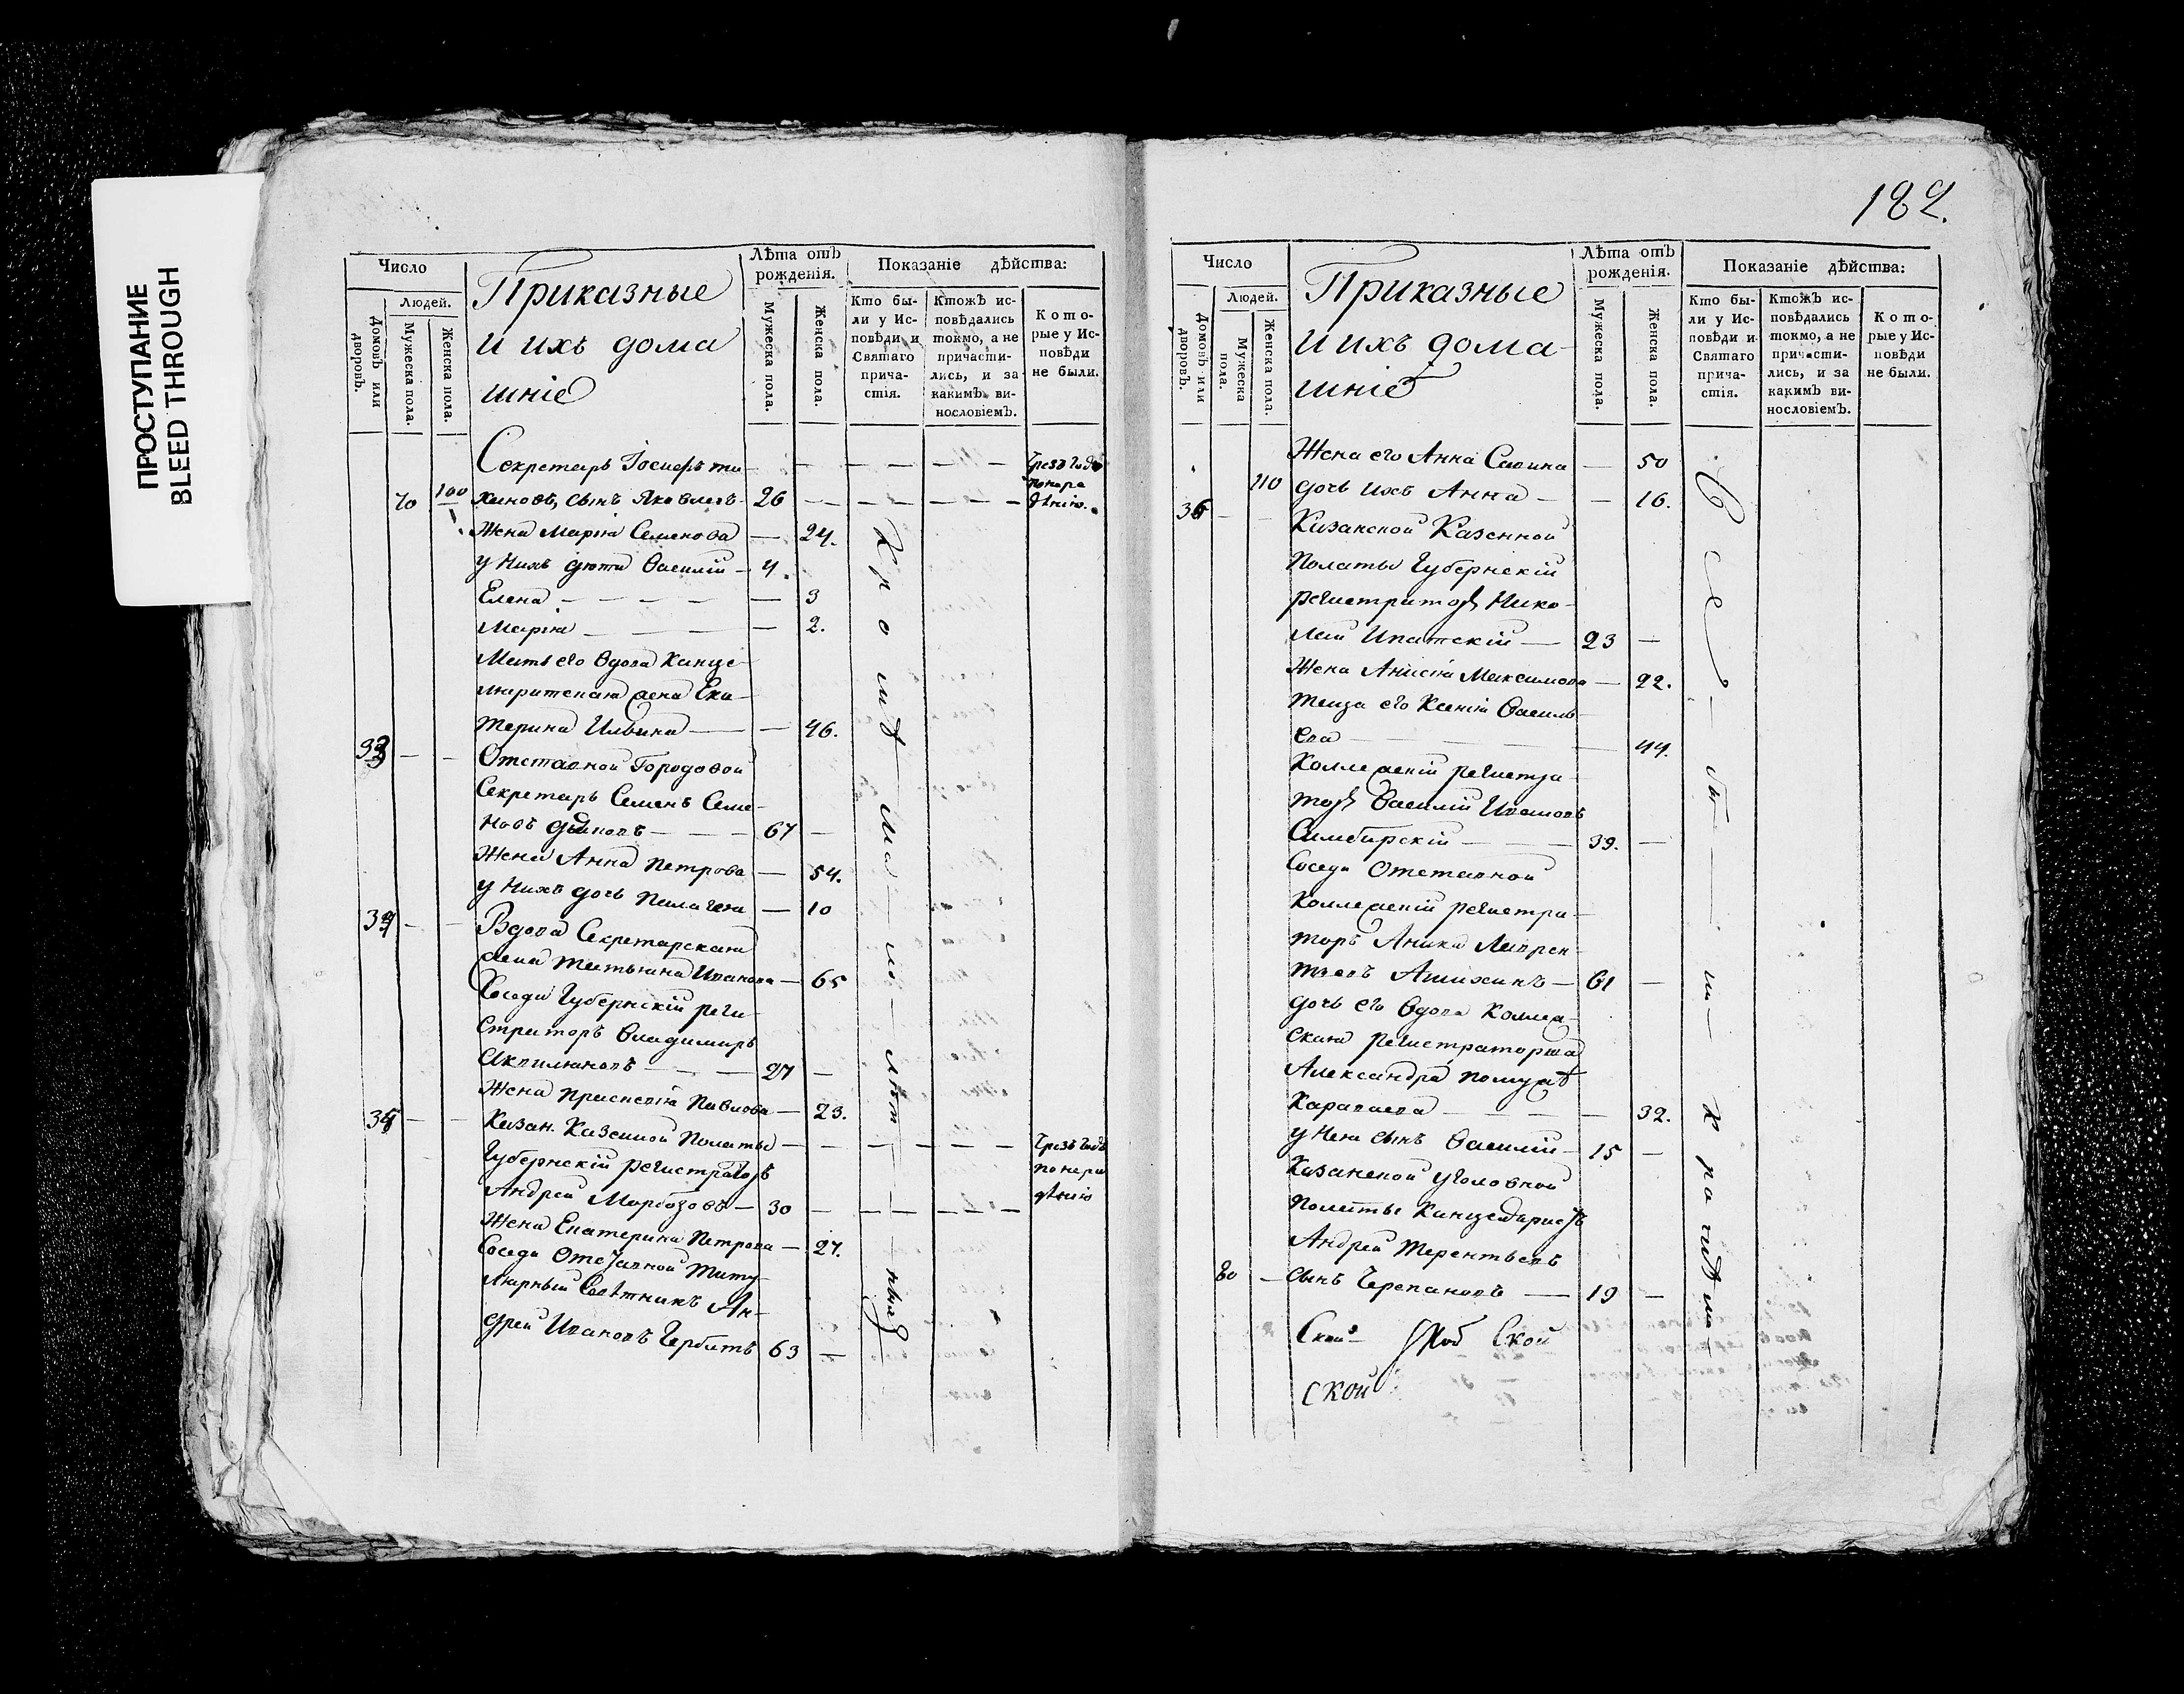 ПРОСТУПАНИЕ
BLEED THROUGH
Число
Людей.
Домовъ или дворовъ.
Мужеска пола.
Женска пола.
Приказные
и ихъ дома
шніе
Лѣта отъ
рожденія.
Мужеска пола.
Женска пола.
Показаніе дѣйства:
Кто бы-
ли у Ис-
повѣди и
Святаго
прича-
стія.
Ктожъ ис-
повѣдались
токмо, а не
причасти-
лись, и за
какимъ ви-
нословіемъ.
Кото-
рые у Ис-
повѣди
не были.
Секретарь Іосифъ ти — — — — — Чрезъ годъ
70 100 хановъ, сынъ Яковлевъ 26 — — — — понера
дѣнію.
Жена Марія Семенова — 24.
у нихъ дѣти Василій — 4.
Елена — — — — 3
Марія — — — 2.
Мать его вдова Канце
ляритская жена Ека
терина Ильина — — 46.
33 — — Отставной Городовой
Секретарь Семенъ Семе
новъ — — 67 —
Жена Анна Петрова — 54.
у нихъ дочь Пелагея — 10
34 — — Вдова Секретарская
жена Татьяна Иванова — 65
Соседи Губернскій реги
страторъ Владимиръ
— — 27 —
Жена Прасковія Павлова — 23.
35 — — Казан. Казенной Полаты — — — — Чрезъ годъ
Губернскій регистраторъ понера
Андрей — 30 — — — — — дѣнію
Жена Екатерина Петрова — 27.
Соседи Отставной Титу
лярный Совѣтникъ Ан-
дрей Ивановъ 63 —
Кромѣ малолѣтныхъ
182.
Число
Людей.
Домовъ или дворовъ.
Мужеска пола.
Женска пола.
Приказные
и ихъ дома-
шніе
Лѣта отъ
рожденія.
Мужеска пола.
Женска пола.
Показаніе дѣйства:
Кто бы-
ли у Ис-
повѣди и
Святаго
прича-
стія.
Ктожъ ис-
повѣдались
токмо, а не
причасти-
лись, и за
какимъ ви-
нословіемъ.
Кото-
рые у Ис-
повѣди
не были.
Жена его Анна Савина — 50
110 дочь ихъ Анна — — 16.
36 — — Казанской Казенной
Полаты Губернскій
регистраторъ Нико-
лай Ипатскій — 23 —
Жена Анисія Максимова — 22.
теща его Ксенія Василь
ева — — — 44.
Коллежскій регистра
торъ Василій Ивановъ
Симбирскій — — 39. —
Соседи Отставной
Коллежскій регистра-
торъ Аника Лаврен-
тьевъ — 61 —
дочь его вдова Коллеж-
ская регистраторша
Александра
Караваева — — — 32.
у нея сынъ Василій — 15 —
Казанской уголовной
полаты Канцеляристъ
Андрей Терентьевъ
80 — сынъ Черепановъ — 19 —
Ской
ской